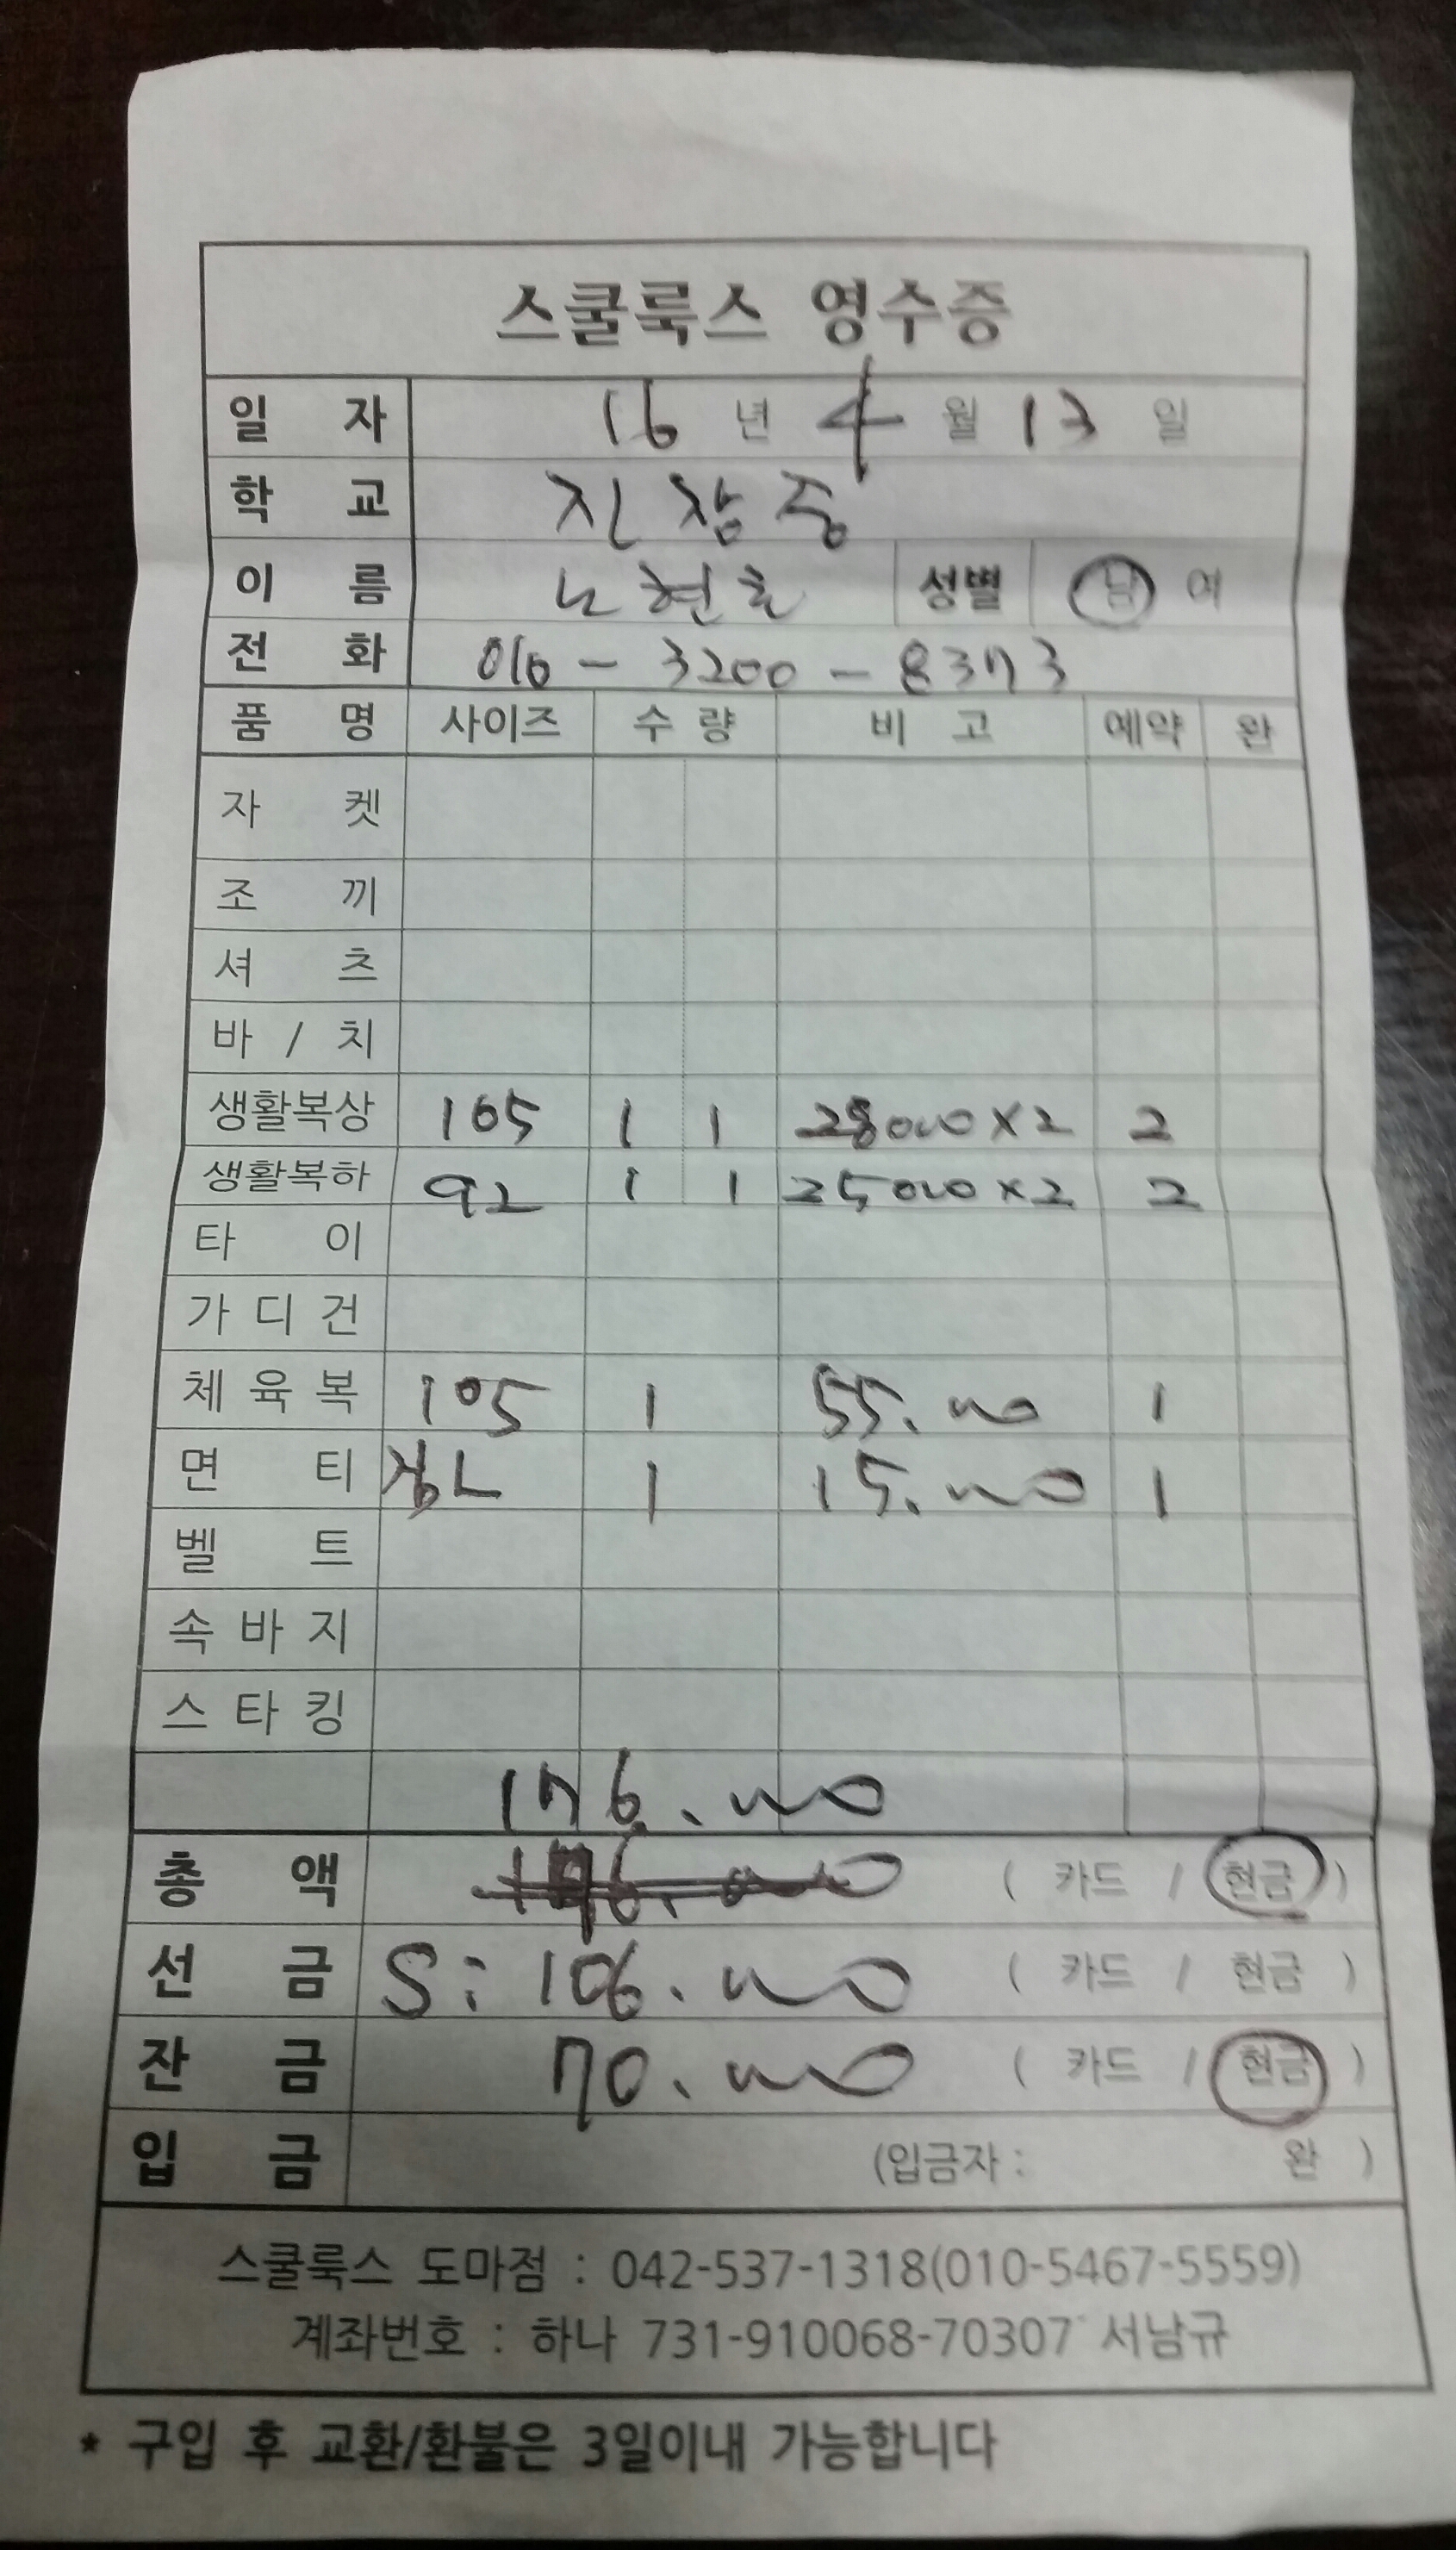 스쿨룩스 영수증
일 자 16 년 4 월 13 일
학 교 진참중
이 름 노현호 성별 남 여
전 화 010 - 3200 - 8373
품 명 사이즈 수 량 비 고 예약 완
자 켓
조 끼
셔 츠
바 / 치
생활복상 105 1 1 28000×2 2
생활복하 92 1 1 25000×2 2
타 이
가 디 건
체 육 복 105 1 55.000 1
면 티 L 1 15.000 1
벨 트
속 바 지
스 타 킹
176.000
총 액 ( 카드 / 현금 )
선 금 S: 106.000 ( 카드 / 현금 )
잔 금 70.000 ( 카드 / 현금 )
입 금 (입금자 : 완 )
스쿨룩스 도마점 : 042-537-1318(010-5467-5559)
계좌번호 : 하나 731-910068-70307 서남규
* 구입 후 교환/환불은 3일이내 가능합니다